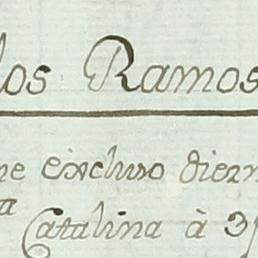 los Ramos
ne excluso diezm
a
Catalina à 3